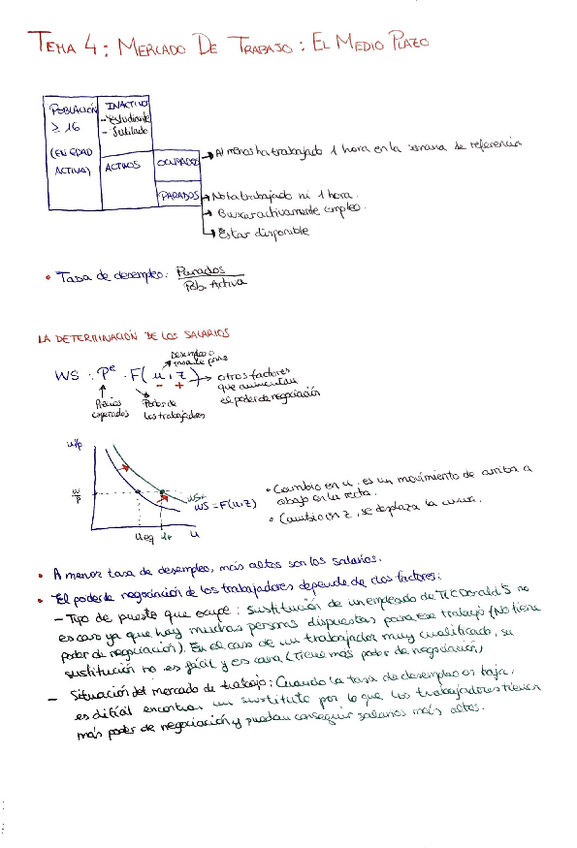 TEMA 4: MERCADO DE TRABAJO: EL MEDIO PLAZO
POBLACIÓN ≥ 16 (EN EDAD ACTIVA)
INACTIVOS
- Estudiante
- Jubilado
ACTIVOS
OCUPADOS
→ Al menos ha trabajado 1 hora en la semana de referencia
PARADOS
→ No ha trabajado ni 1 hora.
→ Buscar activamente empleo.
→ Estar disponible
• Tasa de desempleo: Parados / Pob. Activa
LA DETERMINACIÓN DE LOS SALARIOS
Desempleo o tasa de paro
WS : Pᵉ · F(u, z) → otros factores
- +
que aumentan
el poder de negociación
Precios esperados
Poder de los trabajadores
w/p
w/p
WS'
WS = F(u, z)
u
• Cambio en u, es un movimiento de arriba a
abajo en la recta.
• Cambio en z, se desplaza la curva.
• A menor tasa de desempleo, más altos son los salarios.
• El poder de negociación de los trabajadores depende de dos factores:
- Tipo de puesto que ocupe: sustitución de un empleado de McDonald's no
es caro ya que hay muchas personas dispuestas para ese trabajo (No tiene
poder de negociación). En el caso de un trabajador muy cualificado, su
sustitución no es fácil y es cara (tiene más poder de negociación)
- Situación del mercado de trabajo: Cuando la tasa de desempleo es baja,
es difícil encontrar un sustituto por lo que los trabajadores tienen
más poder de negociación y puedan conseguir salarios más altos.